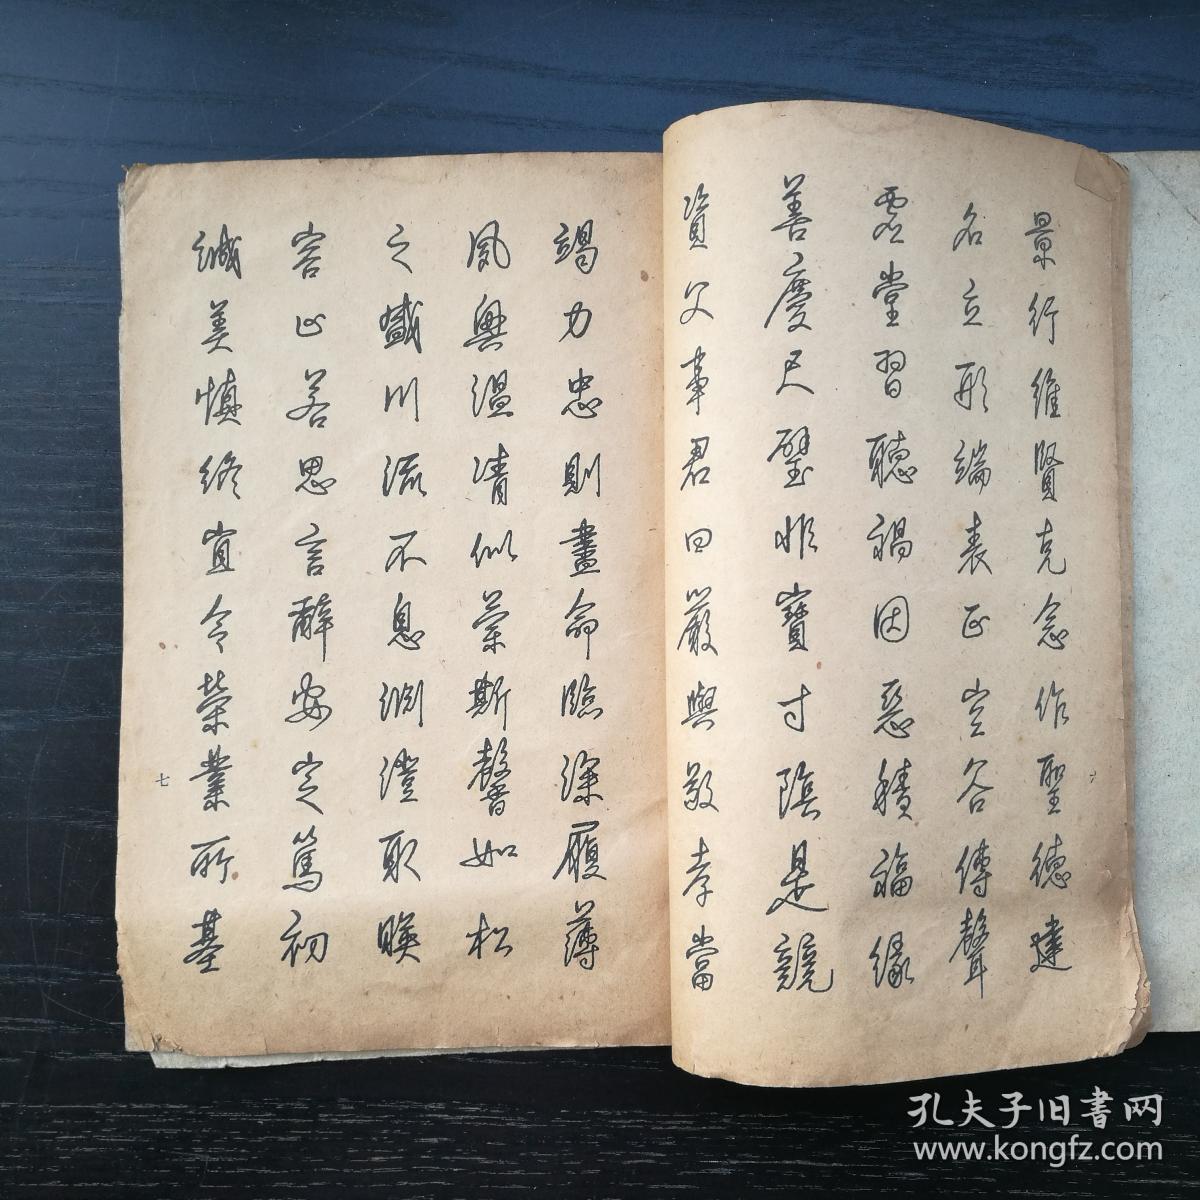 景行維賢克念作聖德建
名立形端表正空谷傳聲
虛堂習聽禍因惡積福緣
善慶尺璧非寶寸陰是競
資父事君曰嚴與敬孝當
六
竭力忠則盡命臨深履薄
夙興溫清似蘭斯馨如松
之盛川流不息淵澄取暎
容止若思言辭安定篤初
誠美慎終宜令榮業所基
七
孔夫子旧书网
www.kongfz.com